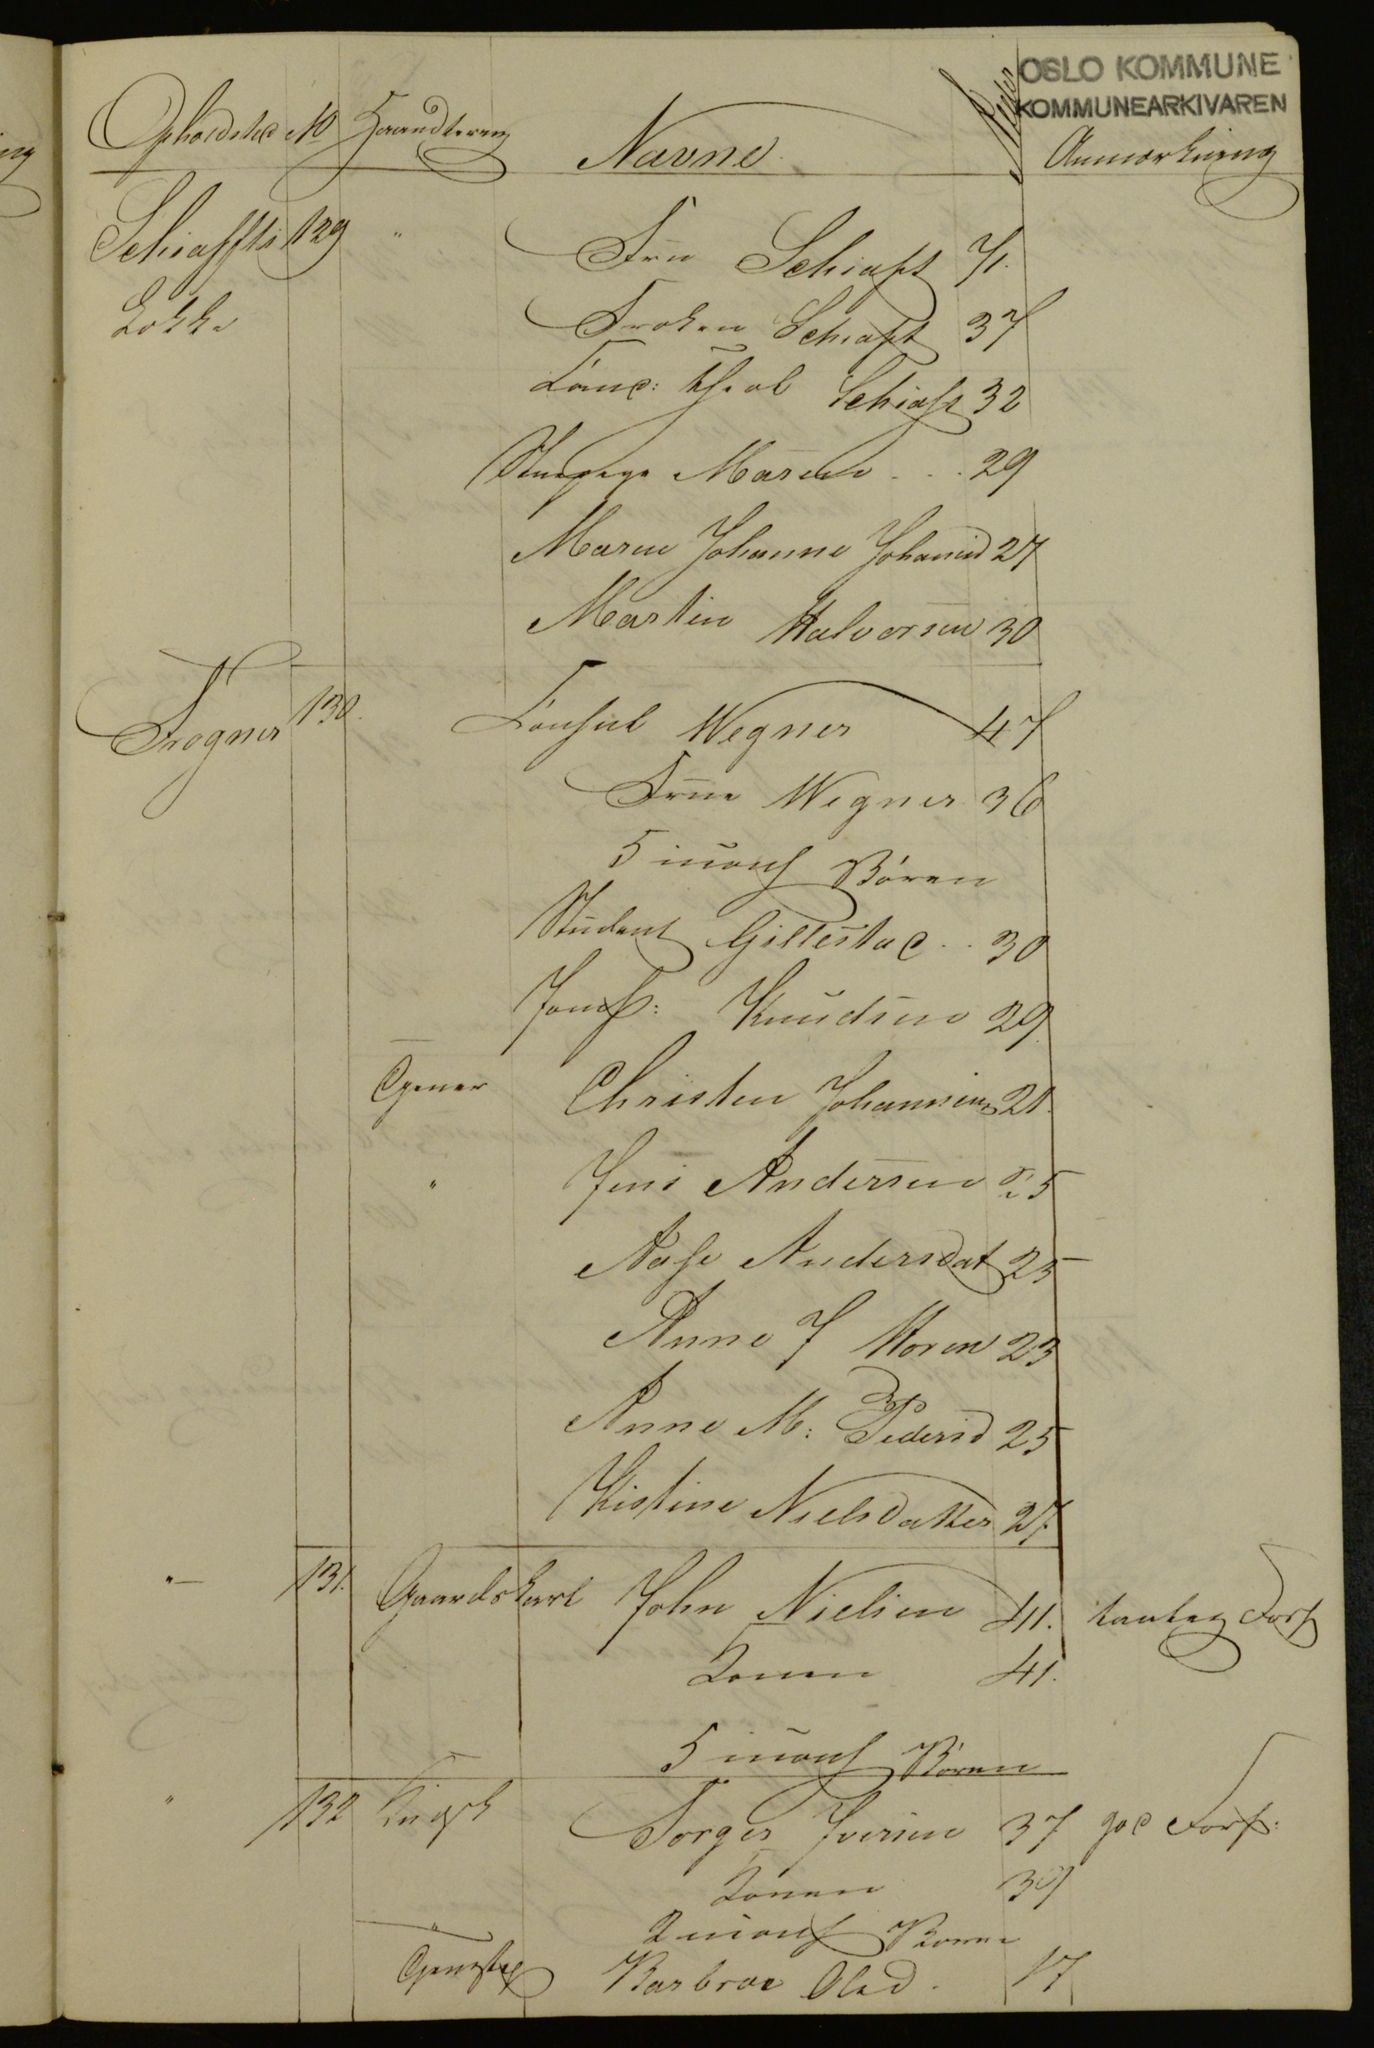 OSLO KOMMUNE
KOMMUNEARKIVAREN
Opholdsted No Haandtering Navne Alder Anmærkning
Schiaffts 129 " Fru Schiaft 71.
Løkke Frøken Schiaft 37
Cand: theol Schiaft 32
Stuepige Maren . . . 29
Maren Johanne Johansd 27
Martin Halvorsen 30
Frogner 130. Consul Wegner 47
Frue Wegner 36
5 umynd Børen
Student Gillestad . . 30
Jomf: Knudsen 29
Tjener Christen Johannsen 21.
" Jens Andersen 25
Aase Andersdat 25
Anne J Moren 23
Anne M: Pedersd 25
Kistine Nielsdatter 27
"— 131. Gaardskarl John Nielsen 41. Forf
Konen 41.
5 umynd Børen
" 132 Kudsk Torger Iversen 37 god Forf:
Konen 39
2 umynd Børen
Tjenestep Barbroe Olsd. 17